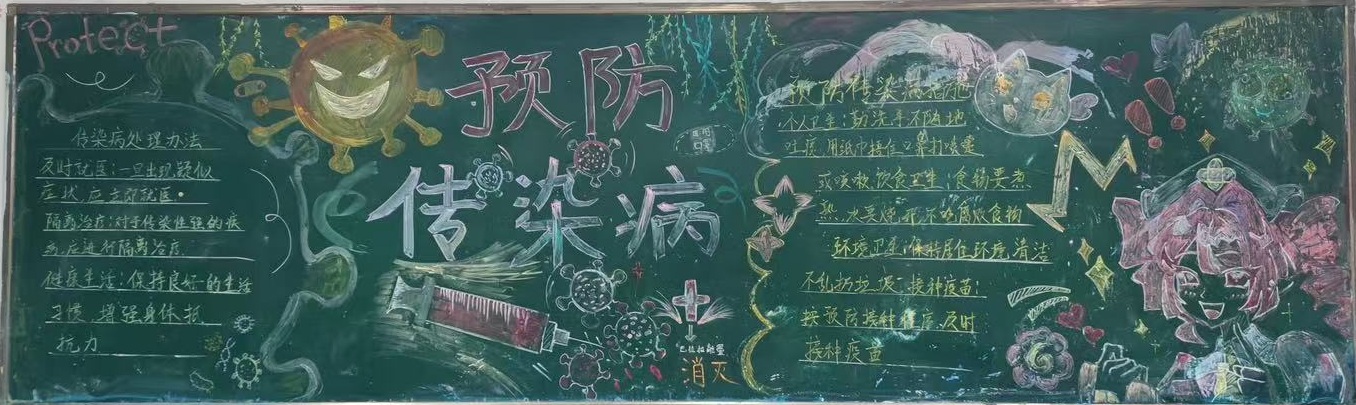 Protect
传染病处理办法
及时就医:一旦出现疑似
症状,应立即就医.
隔离治疗:对于传染性强的疾
病,应进行隔离治疗.
健康生活:保持良好的生活
习惯,增强身体抵
抗力
预防
传染病
巴拉拉能量
消灭
预防传染病措施
个人卫生:勤洗手不随地
吐痰,用纸巾捂住口鼻打喷嚏
或咳嗽,饮食卫生:食物要煮
熟,水要烧开,不吃腐败食物
环境卫生:保持居住环境清洁
不乱扔垃圾,接种疫苗:
按预防接种程序,及时
接种疫苗